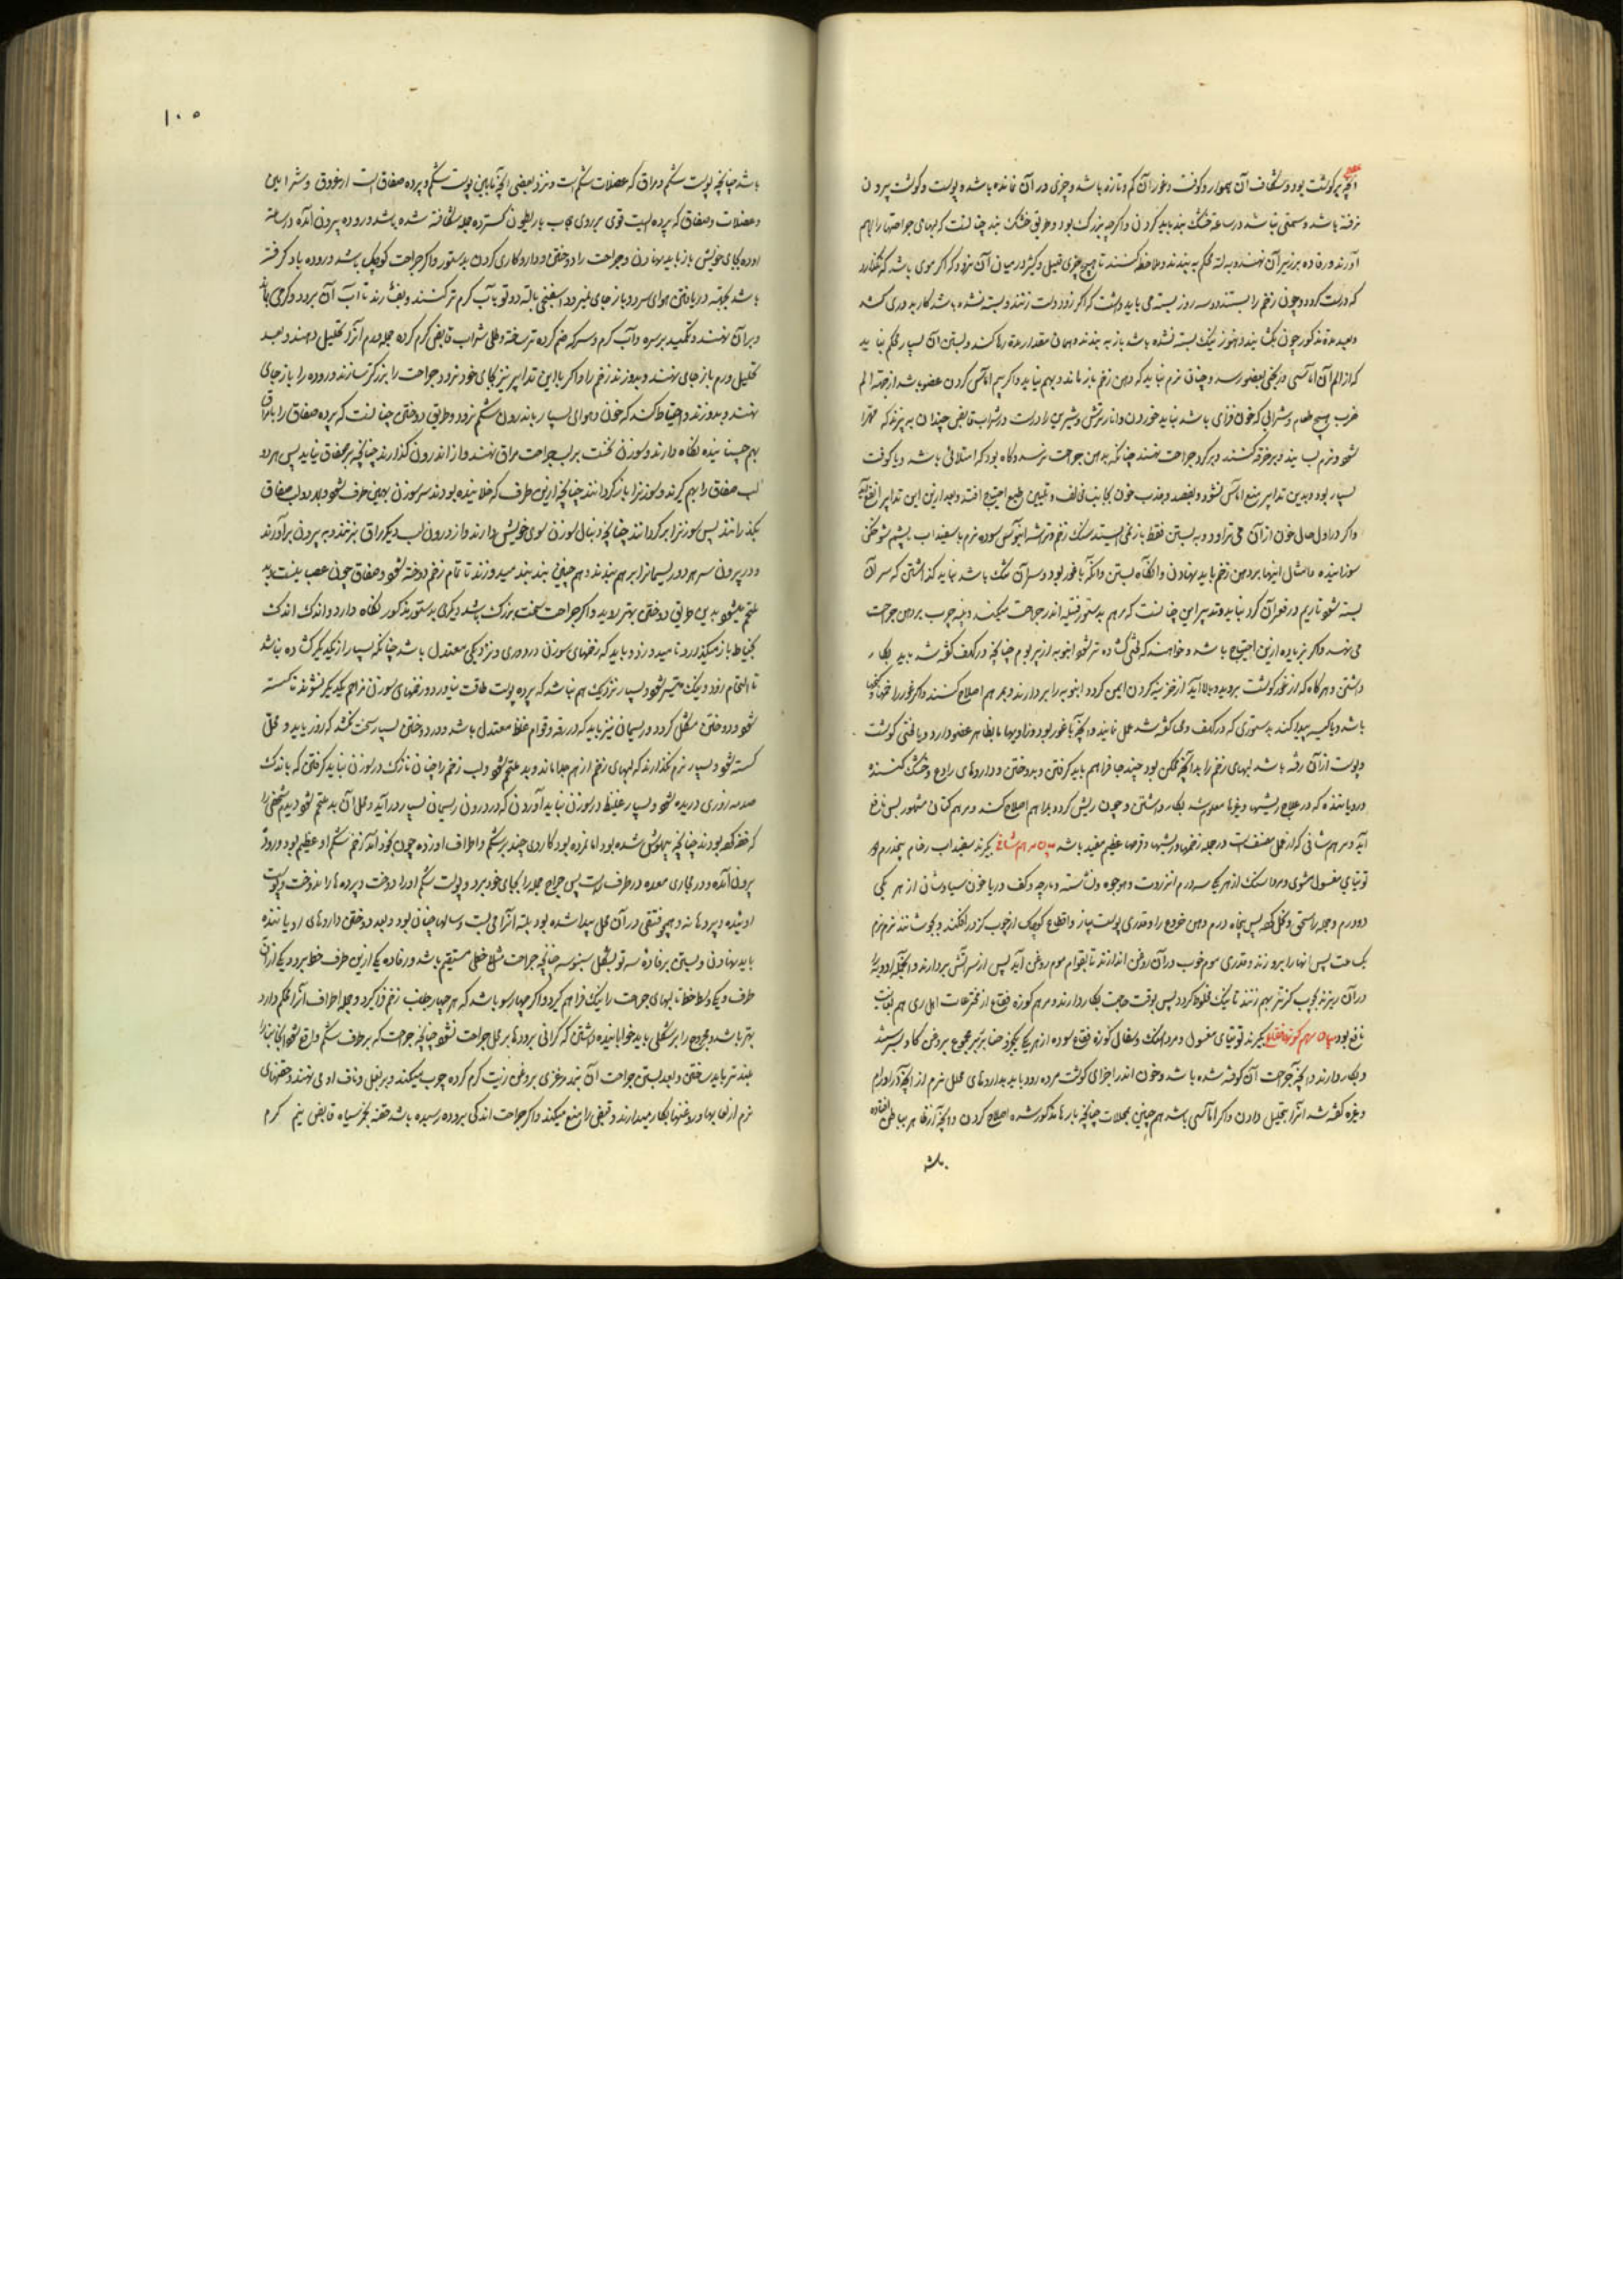 آنچه پر گوشت بود و شکاف آن هموار و کوفت و غور آن کم و تازه باشد و چیزی در آن نمانده باشد و پوست و گوشت بیرون
نرفته باشد و سمی نباشد در ساعت خشک بند باید کردن و اگرچه بزرگ بود و طریق خشک بند چنانست که لبهای جراحتها را بهم
آورند و رفاده بر زبر آن نهند و به لته محکم به بندند و ملاحظه کنند تا هیچ چیزی قلیل و کثیر در میان آن نرود و که اگر موی باشد که نگذارد
که درست گردد و چون زخم را بستند دو سه روز بسته می باید داشت که اگر زود دست زنند و بسته نشده باشد کار بدوری کشد
و بعد مدة مذکور چون بگشایند و هنوز نیک بسته نشده باشد باز به بندند و همان مقدار مدة رها کنند و بستن آن بسیار محکم نباید
که از الم آن اماسی و رنجی بعضو رسد و چنان نرم نباید که دهن زخم باز ماند و بهم نیاید و اگر بیم اماس کردن عضو باشد از جهة الم
ضرب هیچ طعام و شرابی که خون فزای باشد نباید خوردن و انار ترش و شیرین را درست در شراب قابض چندان به پزند که مهرا
شود و نرم بسایند و بر خرقه کنند و بر گرد جراحت نهند چنانکه بدهن جراحت نرسد و گاه بود که امتلائی باشد و یا کوفت
بسیار بود و بدین تدابیر منع اماس نشود و بفصد و جذب خون بجانب مخالف و تلیین طبع احتیاج افتد و بعد ازین این تدابیر
و اگر در اول حال خون از آن می تراود و به بستن فقط باز نمی ایستد سنگ زخم و تراشه ابنوس سوده نرم با سفیداب پشم شوخگن
سوزانیده و امثال اینها بر دهن زخم باید نهادن و آنگاه بستن و آنکه با غور بود و سر آن تنگ باشد نباید گذاشتن که سر آن
بسته شود تا ریم در قعر آن گرد نیاید و تدبیر این چنانست که مرهم بدستور فتیله اندر جراحت میکنند و پنبه چوب بر دهن جراحت
می نهند و اگر بزیاده ازین احتیاج باشد و خواهند که قدری گشاده تر شود انبوبه از زیر بوم چنانچه در کفت گفته شد باید بکار
داشتن و هرگاه که از غور گوشت بروید و بالا آید از خزینه کردن ایمن گردد انبوبه را بردارند و بمرهم اصلاح کنند و اگر غور را
باشد و یا کیسه پیدا کند بدستوری که در کفت گفته شد عمل نمایند و آنچه با غور بود و زاویهها بظاهر عضو دارد و یا قدری گوشت
و پوست از آن رفته باشد لبهای زخم را بدانچه ممکن بود چند جا فراهم باید گرفتن و بدوختن و داروهای رادع و خشک کننده
و رویاننده که در علاج ریشها و غیرها معلوم شد بکار داشتن و چون ریش گردد بمراهم اصلاح کنند و مرهم کتان مشهور بس نافع
آید و مرهم شافی که از عمل مصنف است در جمله زخمها و ریشها و قرحها عظیم مفید باشد بیان مرهم شافی بگیرند سفیداب رخام پنجدرم
توتیای مغسول مشوی و مرداسنگ از هر یکی سه درم انزروت و
دو درم و جمله را سحق و نخل کنند پس پنجاه درم دهن خروع را و قدری پوست پیاز و اقطاع کوچک از چوب گز در افکنند و بجوشانند نرم نرم
یک ساعت پس انها را بیرون زنند و قدری موم خوب در آن روغن اندازند تا بقوام موم روغن آید پس از سر آتش بردارند و
در آن ریزند و بچوب گز بهم زنند تا نیک مخلوط گردد پس بوقت حاجت بکار دارند و مرهم کوزه فقاع از مخترعات اهل ری هم بغایت
نافع بود بیان مرهم کوزه فقاع بگیرند توتیای مغسول و مرداسنگ و سفال کوزه فقاع سوده از هر یکی یکجزو حنا برابر مجموع بروغن گاو بسرشند
و بکار دارند و آنچه جراحت آن کوفته شده باشد و خون اندر اجزای گوشت مرده رود باید بداروهای محلل نرم
و غیره گفته شد آنرا بتحلیل دادن و اگر اماسی باشد هم چنین بمحللات چنانچه بارها مذکور شده اصلاح کردن و آنچه از ظاهر بباطن افتاده
باشد
۱۰۵
باشد چنانچه پوست شکم و مراق که عضلات شکم است و نزد بعضی آنچه مابین پوست شکم و پرده صفاق است از عروق و شرایین
و عضلات و صفاق که پرده ایست قوی بر روی حجاب باریطون گسترده جمله شکافته شده باشد و روده بیرون آمده در ساعت
روده بجای خویش باز باید نهادن و جراحت را دوختن و داروکاری کردن بدستور و اگر جراحت کوچک باشد و روده باد گرفته
باشد بجهة دریافتن هوای سرد و باز جای نمیرود اسفنجی یا لته دو تو بآب گرم تر کنند و بفشارند تا آب آن برود و گرمی
بر آن نهند و تکمید بر سره و آب گرم و سرکه ضم کرده تر ساخته و طلی شراب قابض گرم کرده جمله ورم آنرا تحلیل دهند و بعد
تحلیل ورم باز جای نهند و بدوزند زخم را و اگر با این تدابیر نیز بجای خود نرود جراحت را بزرگتر سازند و روده را باز جای
نهند و بدوزند و احتیاط کنند که خون و هوای بسیار باندرون شکم نرود و طریق دوختن چنانست که پرده صفاق را با مراق
بهم چسبانیده نگاه دارند و سوزن نخست بر لب جراحت مراق نهند و از اندرون گذارند چنانچه بر صفاق نیاید پس هر دو
لب صفاق را بهم گیرند و سوزن را باز گردانند چنانچه ازین طرف که خلانیده بودند سر سوزن بهمین طرف شود و بهر دو لب صفاق
بگذرانند پس سوزن را برگردانند چنانچه دنبال سوزن سوی خویش دارند و از درون لب دیگر مراق بزنند و به بیرون برآورند
و در بیرون سر هر دو ریسمان را بر هم بندند و هم چنین بند بند میدوزند تا تمام زخم دوخته شود و صفاق چون عصب نیست و بد
ملتحم میشود بدین طریق دوختن بهتر بود و اگر جراحت سخت بزرگ باشد دیگری بدستور مذکور نگاه دارد و اندک اندک
بخیاط باز میگذارد تا میدوزد و باید که زخمهای سوزن در دوری و نزدیکی معتدل باشد چنانکه بسیار از یکدیگر گشاده نباشد
تا التحام زود و نیک میسر شود و بسیار نزدیک هم نباشد که پرده پوست طاقت نیاورد و زخمهای سوزن فراهم یکدیگر نشوند تا گسسته
شود و دوختن مشکل گردد و ریسمان نیز باید که در رقه و قوام غلظ معتدل باشد و در دوختن بسیار سخت نکشند که زور یابد و محل
گسسته شود و بسیار نرم نگذارند که لبهای زخم از هم جدا ماند و بد ملتحم شود و لب زخم را چنان نازک در سوزن نباید گرفتن که باندک
صدمه زوری دریده شود و بسیار غلیظ در سوزن نباید آوردن که در درون ریسمان بسیار درآید و محل آن بد ملتحم شود دیدم شخصی را
که خفه کرده بودند چنانچه بیهوش شده بود اما نمرده بود کاردی چند بر شکم و اطراف او زده چون بخود آمد زخم شکم او عظیم بود و روده
بیرون آمده و در مجاری معده در طرف راست پس جراح جمله را بجای خود برد و پوست شکم او را دوخت و پرده ها را ندوخت و پوست
او رسیده و پرده ها نه و همچو فتقی در آن محل پیدا شده بود بلته آنرا می بست و سالها چنان بود و بعد دوختن داروهای رویاننده
باید نهادن و بستن بر رفاده سه تو بشکل سنبوسه چنانچه جراحت مثلا خطی مستقیم باشد و رفاده یکی ازین طرف خط برود و یکی از آن
طرف و یکی وسط خط تا لبهای جراحت را نیک فراهم گیرد و اگر چهار سو باشد که هر چهار جانب زخم فرا گیرد و جمله اطراف آنرا محکم دارد
بهتر باشد و مجروح را بر شکلی باید خوابانیده داشتن که گرانی روده ها بر محل جراحت نشود چنانچه جراحت که بر طرف شکم واقع شود آنجانب را
بلندتر باید ساختن و بعد بستن جراحت آن بند مرغزی بروغن زیت گرم کرده چوب میکنند و بر بغل و ناف او می نهند و حقنهای
نرم از لعابها و روغنها بکار میدارند و قبض را منع میکنند و اگر جراحت اندکی بروده رسیده باشد حقنه بخمر سیاه قابض نیم گرم